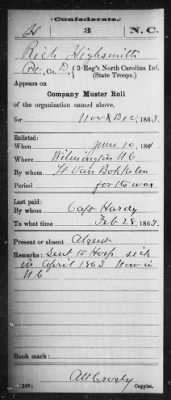 (Confederate.)
H 3 N.C.
Rich Highsmith
Pt, Co. D, 3 Reg't North Carolina Inf.
(State Troops.)
Appears on
Company Muster Roll
of the organization named above,
for Nov & Dec, 1863.
Enlisted:
When June 10, 186
Where Wilmington N C
By whom Lt Van Bokkelen
Period for the war
Last paid:
By whom Capt Hardy
To what time Feb 28, 1863.
Present or absent Absent
Remarks: Sent to Hosp sick
in April 1863 Now in
N C
Book mark:
Copyist.